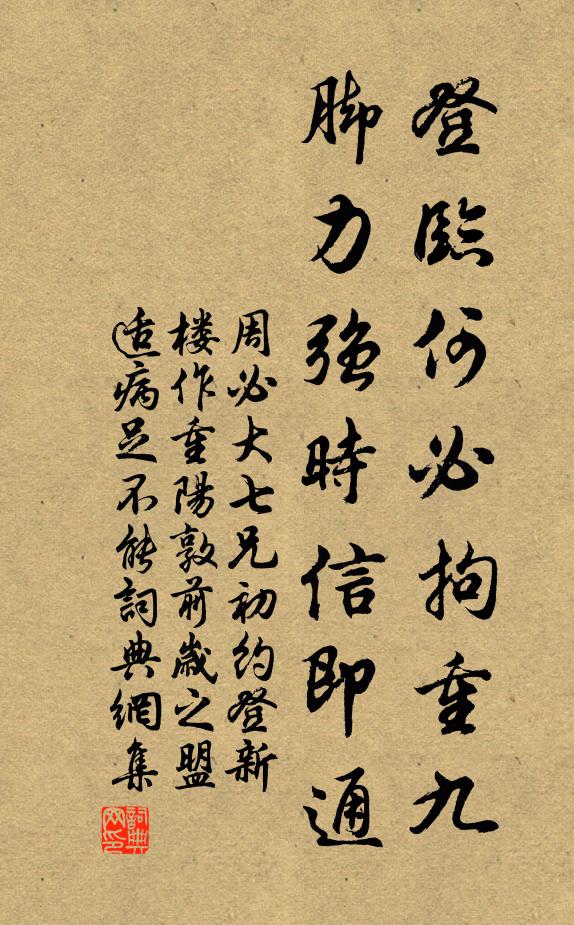 登臨何必拘重九
脚力強時信即通
周必大七兄初約登新
楼作重陽敦前歲之盟
适病足不能詞典網集
詞典网印